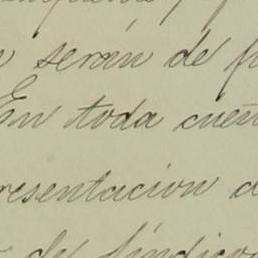 serán de
En toda cuen
resentacion d
de Síndico